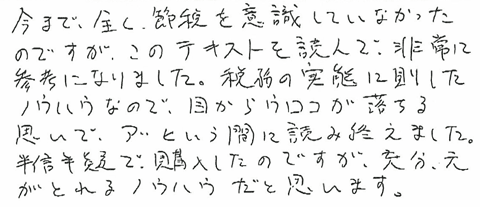 今まで、全く、節税を意識していなかった
のですが、このテキストを読んで、非常に
参考になりました。税務の実態に則した
ノウハウなので、目からウロコが落ちる
思いで、アッという間に読み終えました。
半信半疑で、購入したのですが、充分、元
がとれるノウハウだと思います。